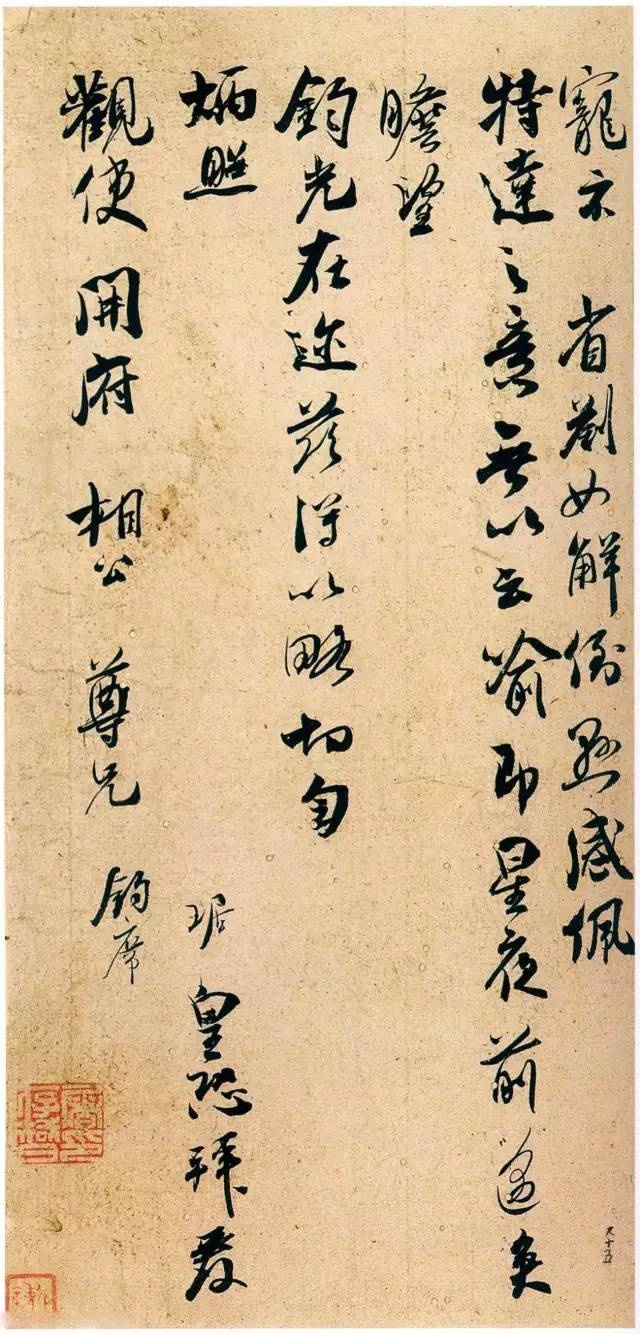 寵示 省劄如解倒懸感佩
特達之意無以云喻即星夜前邁矣
瞻望
鈞光在迩茲得以略切匄
炳照 琚皇恐拜覆
觀使 開府 相公 尊兄 鈞席